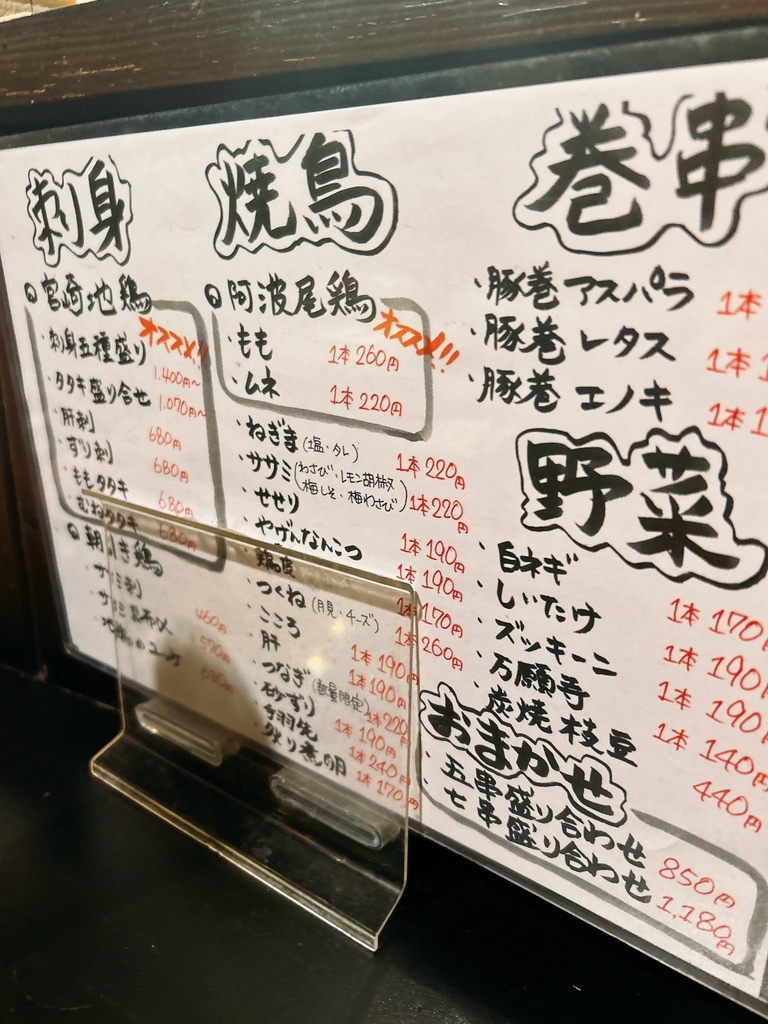 刺身
◎宮崎地鶏
オススメ!!
・刺身五種盛り 1,400円~
・タタキ盛り合せ 1,070円~
・肝刺 680円
・ずり刺 680円
・ももタタキ 680円
・むねタタキ 680円
◎朝引き鶏
・ササミ刺 460円
570円
680円
焼鳥
◎阿波尾鶏
オススメ!!
・もも 1本 260円
・ムネ 1本 220円
・ねぎま(塩・タレ) 1本 220円
・ササミ(わさび・レモン胡椒 梅しそ・梅わさび) 1本 220円
・せせり 1本 190円
・やげんなんこつ 1本 190円
・鶏皮 1本 170円
・つくね(月見・チーズ) 1本 260円
・こころ 1本 190円
・肝 1本 190円
・つなぎ(数量限定) 1本 220円
・砂ずり 1本 190円
・手羽先 1本 240円
・煮卵 1本 170円
巻串
・豚巻 アスパラ 1本
・豚巻 レタス 1本 1
・豚巻 エノキ 1本 1
野菜
・白ネギ 1本 170円
・しいたけ 1本 190円
・ズッキーニ 1本 190円
・万願寺 1本 140円
・炭焼枝豆 440円
おまかせ
・五串盛り合わせ 850円
・七串盛り合わせ 1,180円